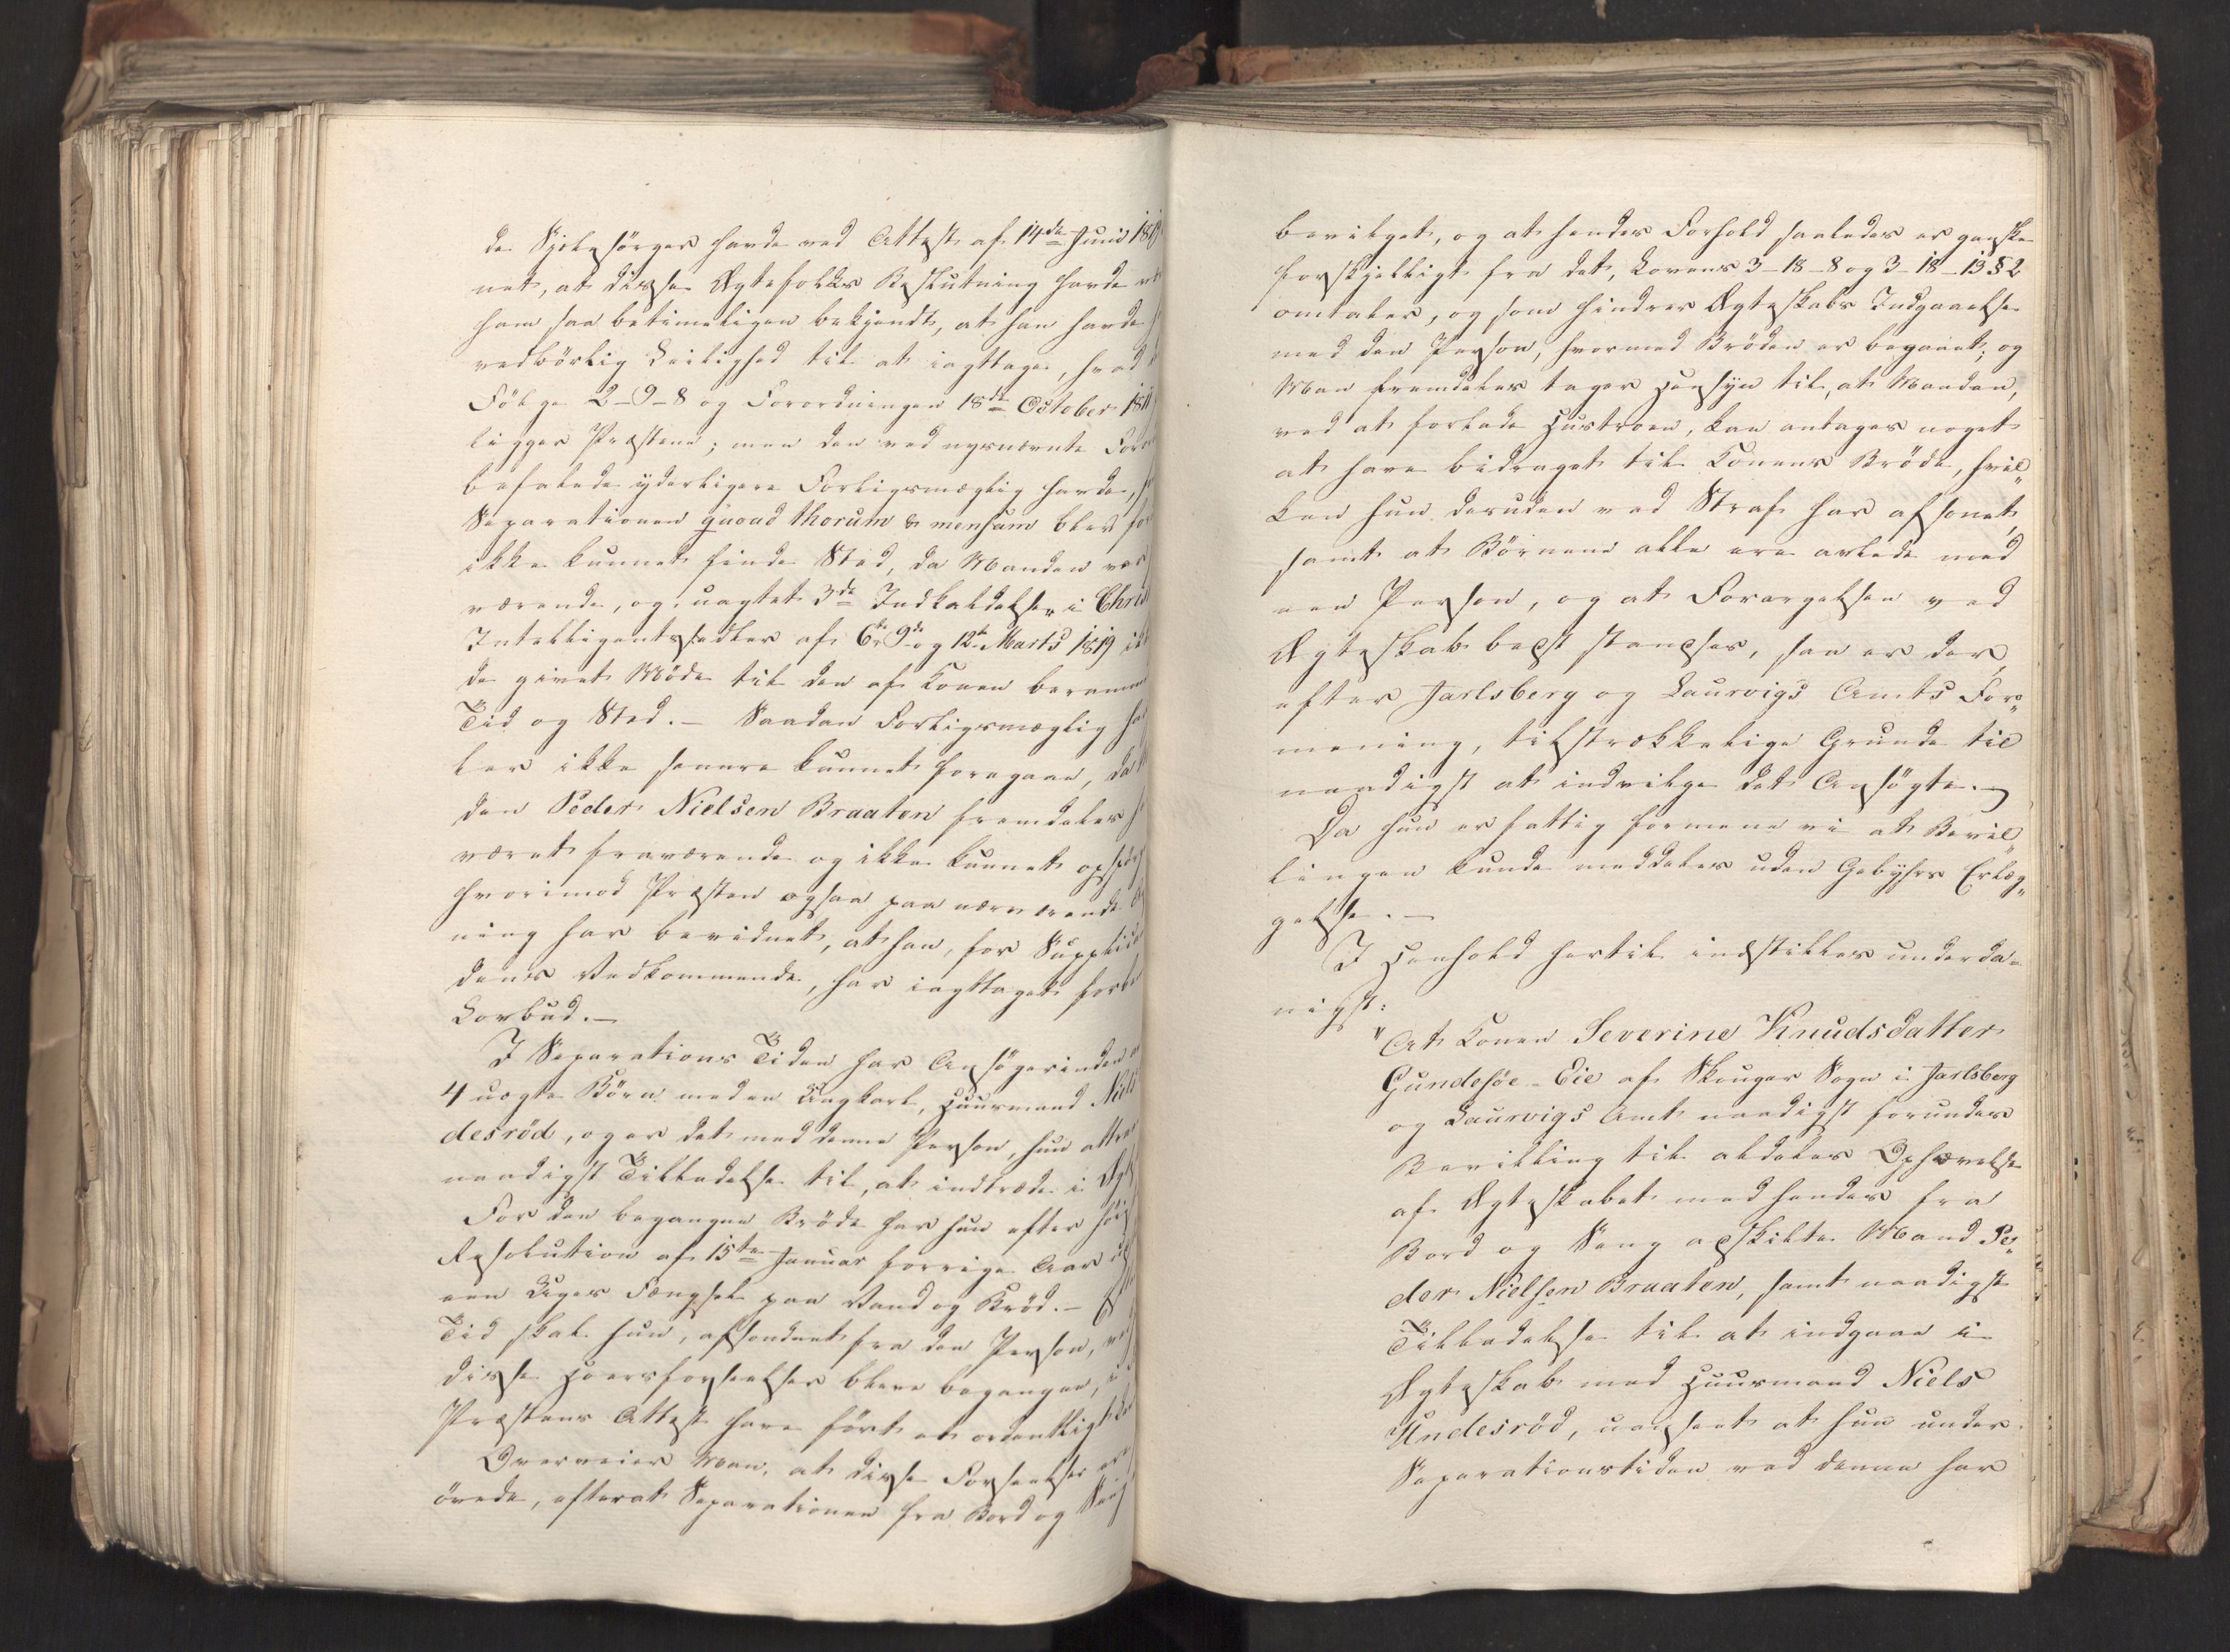 de Sjelesörger havde ved Attest af 14de Junii 1819
net, at disse Ægtefolks Beslutning havde
ham saa betimeligen bekjendt, at han havde
vedbörlig Leilighed til at iagttage, hvad
Fölge 2-9-8 og Forordningen 18de October 1811
ligger Præsterne; men den ved nysnævnte
befalede yderligere Forligsmægling havde,
Separationen quoad thorum & mensam blev
ikke kunnet finde Sted, da Manden var
værende, og, uagtet 3de Indkaldelser i
Intelligentssedler af 6te 9de og 12te Marts 1819
de givet Möde til den af Konen
Tid og Sted. — Saadan Forligsmægling
ler ikke senere kunnet foregaae, da
den Peder Nielsen Braaten fremdeles
været fraværende og ikke kunnet
hvorimod Præsten ogsaa paa nærværende
ning har bevidnet, at han, for
dens Vedkommende, har iagttaget
Lovbud. —
I Separations Tiden har Ansögerinden
4 uægte Börn med en Ungkarl, Huusmand Niels
desröd, og er det med denne Person, hun
naadigst Tilladelse til, at indtræde i
For den begangne Bröde har hun efter
Resolution af 15te Januar forrige Aar
een Uges Fængsel paa Vand og Bröd. —
Tid skal hun, afsondret fra den Person,
disse Hoersforseelser bleve begangne,
Præstens Attest have fört et ordentligt
Overveier Man, at disse Forseelser ere
övede, efterat Separationen fra Bord og Seng
bevilget, og at hendes Forhold saaledes er ganske
forskjelligt fra det, Lovens 3-18-8 og 3-18-13 § 2
omtaler, og som hindrer Ægteskabs Indgaaelse
med den Person, hvormed Bröden er begaaet; og
Man fremdeles tager Hensyn til, at Manden,
ved at forlade Hustruen, kan antages noget
at have bidraget til Konens Bröde, hvil„
ken hun desuden ved Straf har afsonet,
samt at Börnene alle ere avlede med
een Person, og at Forargelsen ved
Ægteskab best standses, saa er der,
efter Jarlsberg og Laurvigs Amts For„
mening, tilstrækkelige Grunde til
naadigst at indvilge det Ansögte. —
Da hun er fattig formene vi at Bevil„
lingen kunde meddeles uden Gebyhrs Erlæg„
gelse. —
I Henhold hertil indstilles underda„
nigst:
"At Konen Severine Knudsdatter
Gundesöe-Eie af Skouger Sogn i Jarlsberg
og Laurvigs Amt naadigst forundes
Bevilling til aldeles Ophævelse
af Ægteskabet med hendes fra
Bord og Seng adskilte Mand Pe„
der Nielsen Braaten, samt naadigst
Tilladelse til at indgaae i
Ægteskab med Huusmand Niels
Undesröd, uanseet at hun under
Separationstiden ved denne har